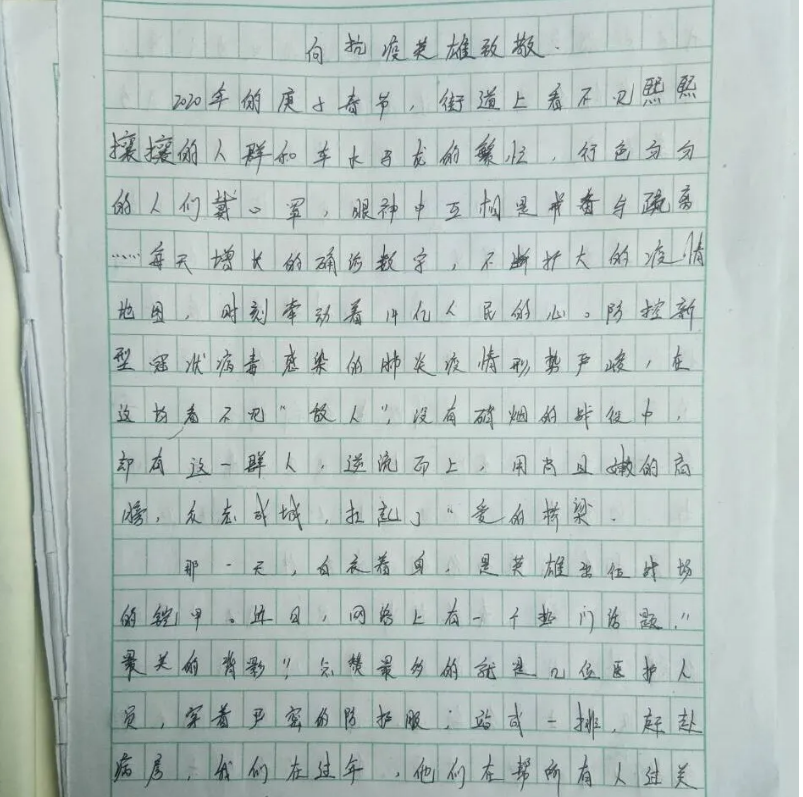 向抗疫英雄致敬.
2020年的庚子春节，街道上看不见熙熙
攘攘的人群和车水马龙的繁忙，行色匆匆
的人们戴口罩，眼神中互相是戒备与疏离
……每天增长的确诊数字，不断扩大的疫情
地图，时刻牵动着14亿人民的心。防控新
型冠状病毒感染的肺炎疫情形势严峻，在
这场看不见“敌人”，没有硝烟的战役中，
却有这一群人，逆流而上，用尚且嫩的肩
膀，众志成城，拉起了“爱的桥梁.
那一天，白衣着身，是英雄出征战场
的铠甲。近日，网络上有一个热门话题，“
最美的背影”，点赞最多的就是几位医护人
员，穿着严密的防护服；站成一排，赶赴
病房，我们在过年，他们在帮所有人过关